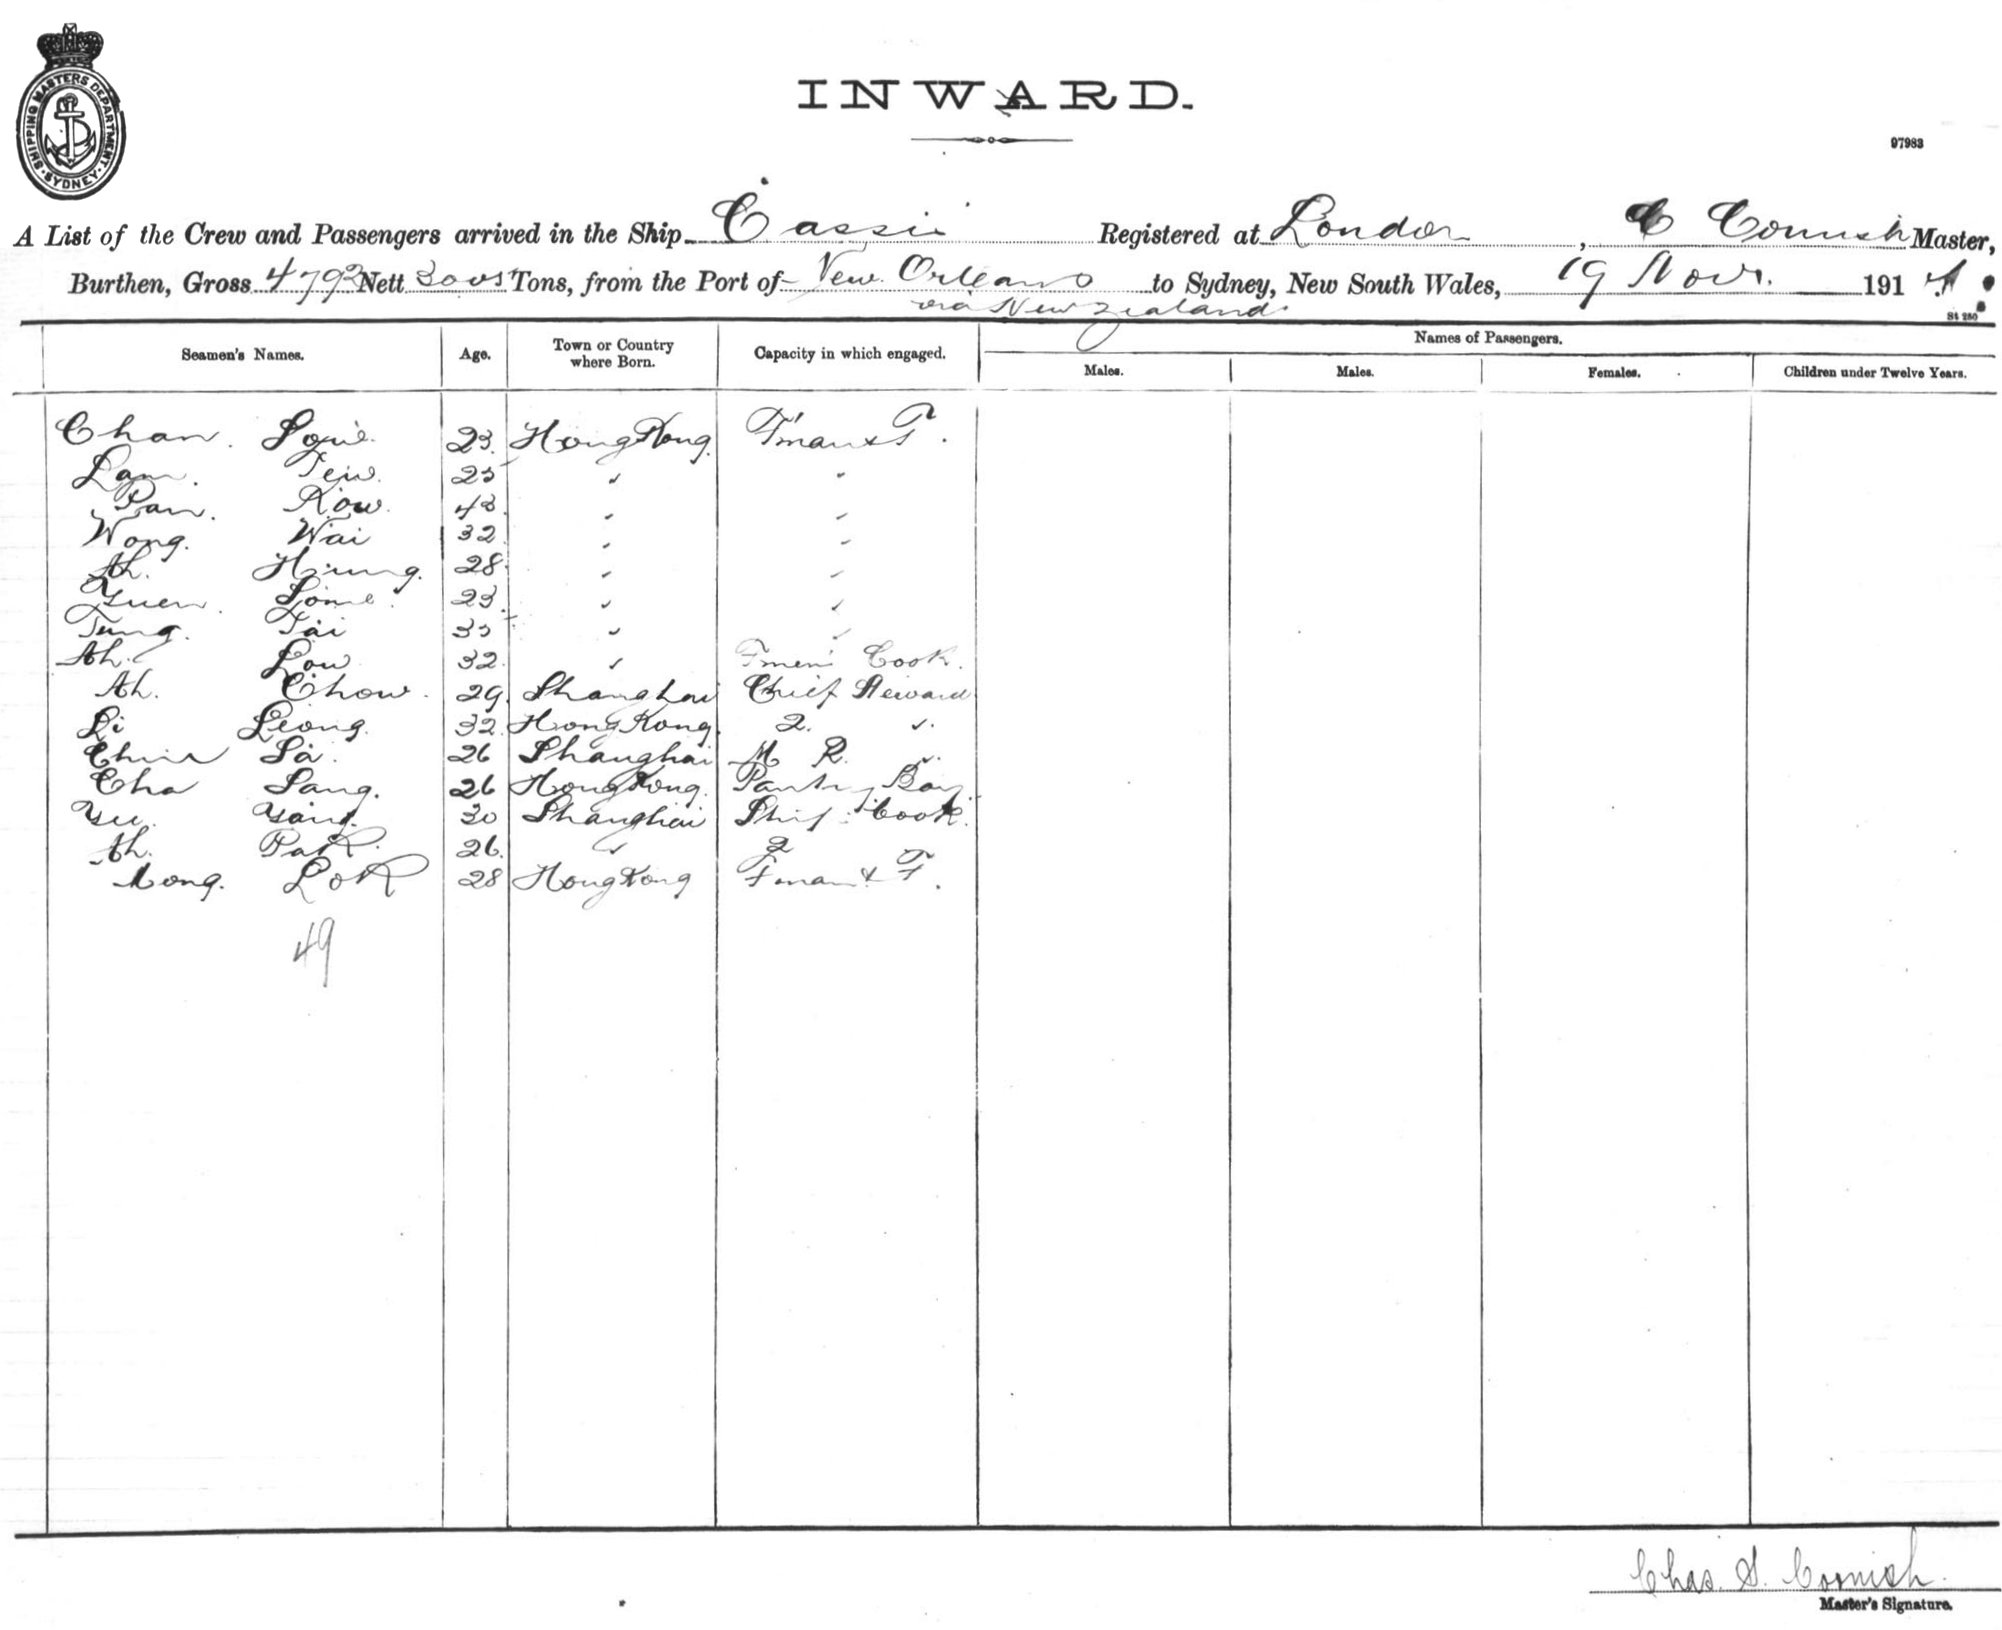 SHIPPING MASTERS DEPARTMENT. SYDNEY
INWARD.
97983
A List of the Crew and Passengers arrived in the Ship Registered at London, C Cornish Master,
Burthen, Gross 4793 Nett 3005 Tons, from the Port of New Orleans to Sydney, New South Wales, 19 Novr. 1914
via New Zealand
St 250
Seamen's Names. Age. Town or Country where Born. Capacity in which engaged. Names of Passengers.
Males. Males. Females. Children under Twelve Years.
Chan 23. Hong Kong. F'man & T.
Lam. 25 " "
Kow. 43. " "
Wong. Wai 32. " "
Ah. 28. " "
Yuen. 23. " "
Tung. Tai 35 " "
Ah. Low 32. " Fmens Cook.
Ah. Chow. 29. Shanghai Chief Steward
Li Leong. 32. Hong Kong. 2. "
26 Shanghai M R. "
Cha Sang. 26 Hong Kong. Pantry Boy.
Yu. 30 Shanghai Ship's Cook.
Ah. Pak. 26. " 2
Lok 28 Hong Kong Fman & T.
49
Chas. S. Cornish.
Master's Signature.